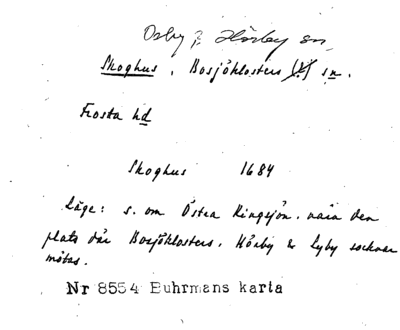 Osby ? Hörby sn,
Skoghus, Bosjöklosters (?) sn.
Frosta hd
Skoghus 1684
Läge: s. om Östra Ringsjön, nära den
plats där Bosjöklosters, Hörby & Lyby socknar
mötas.
Nr 8554 Buhrmans karta